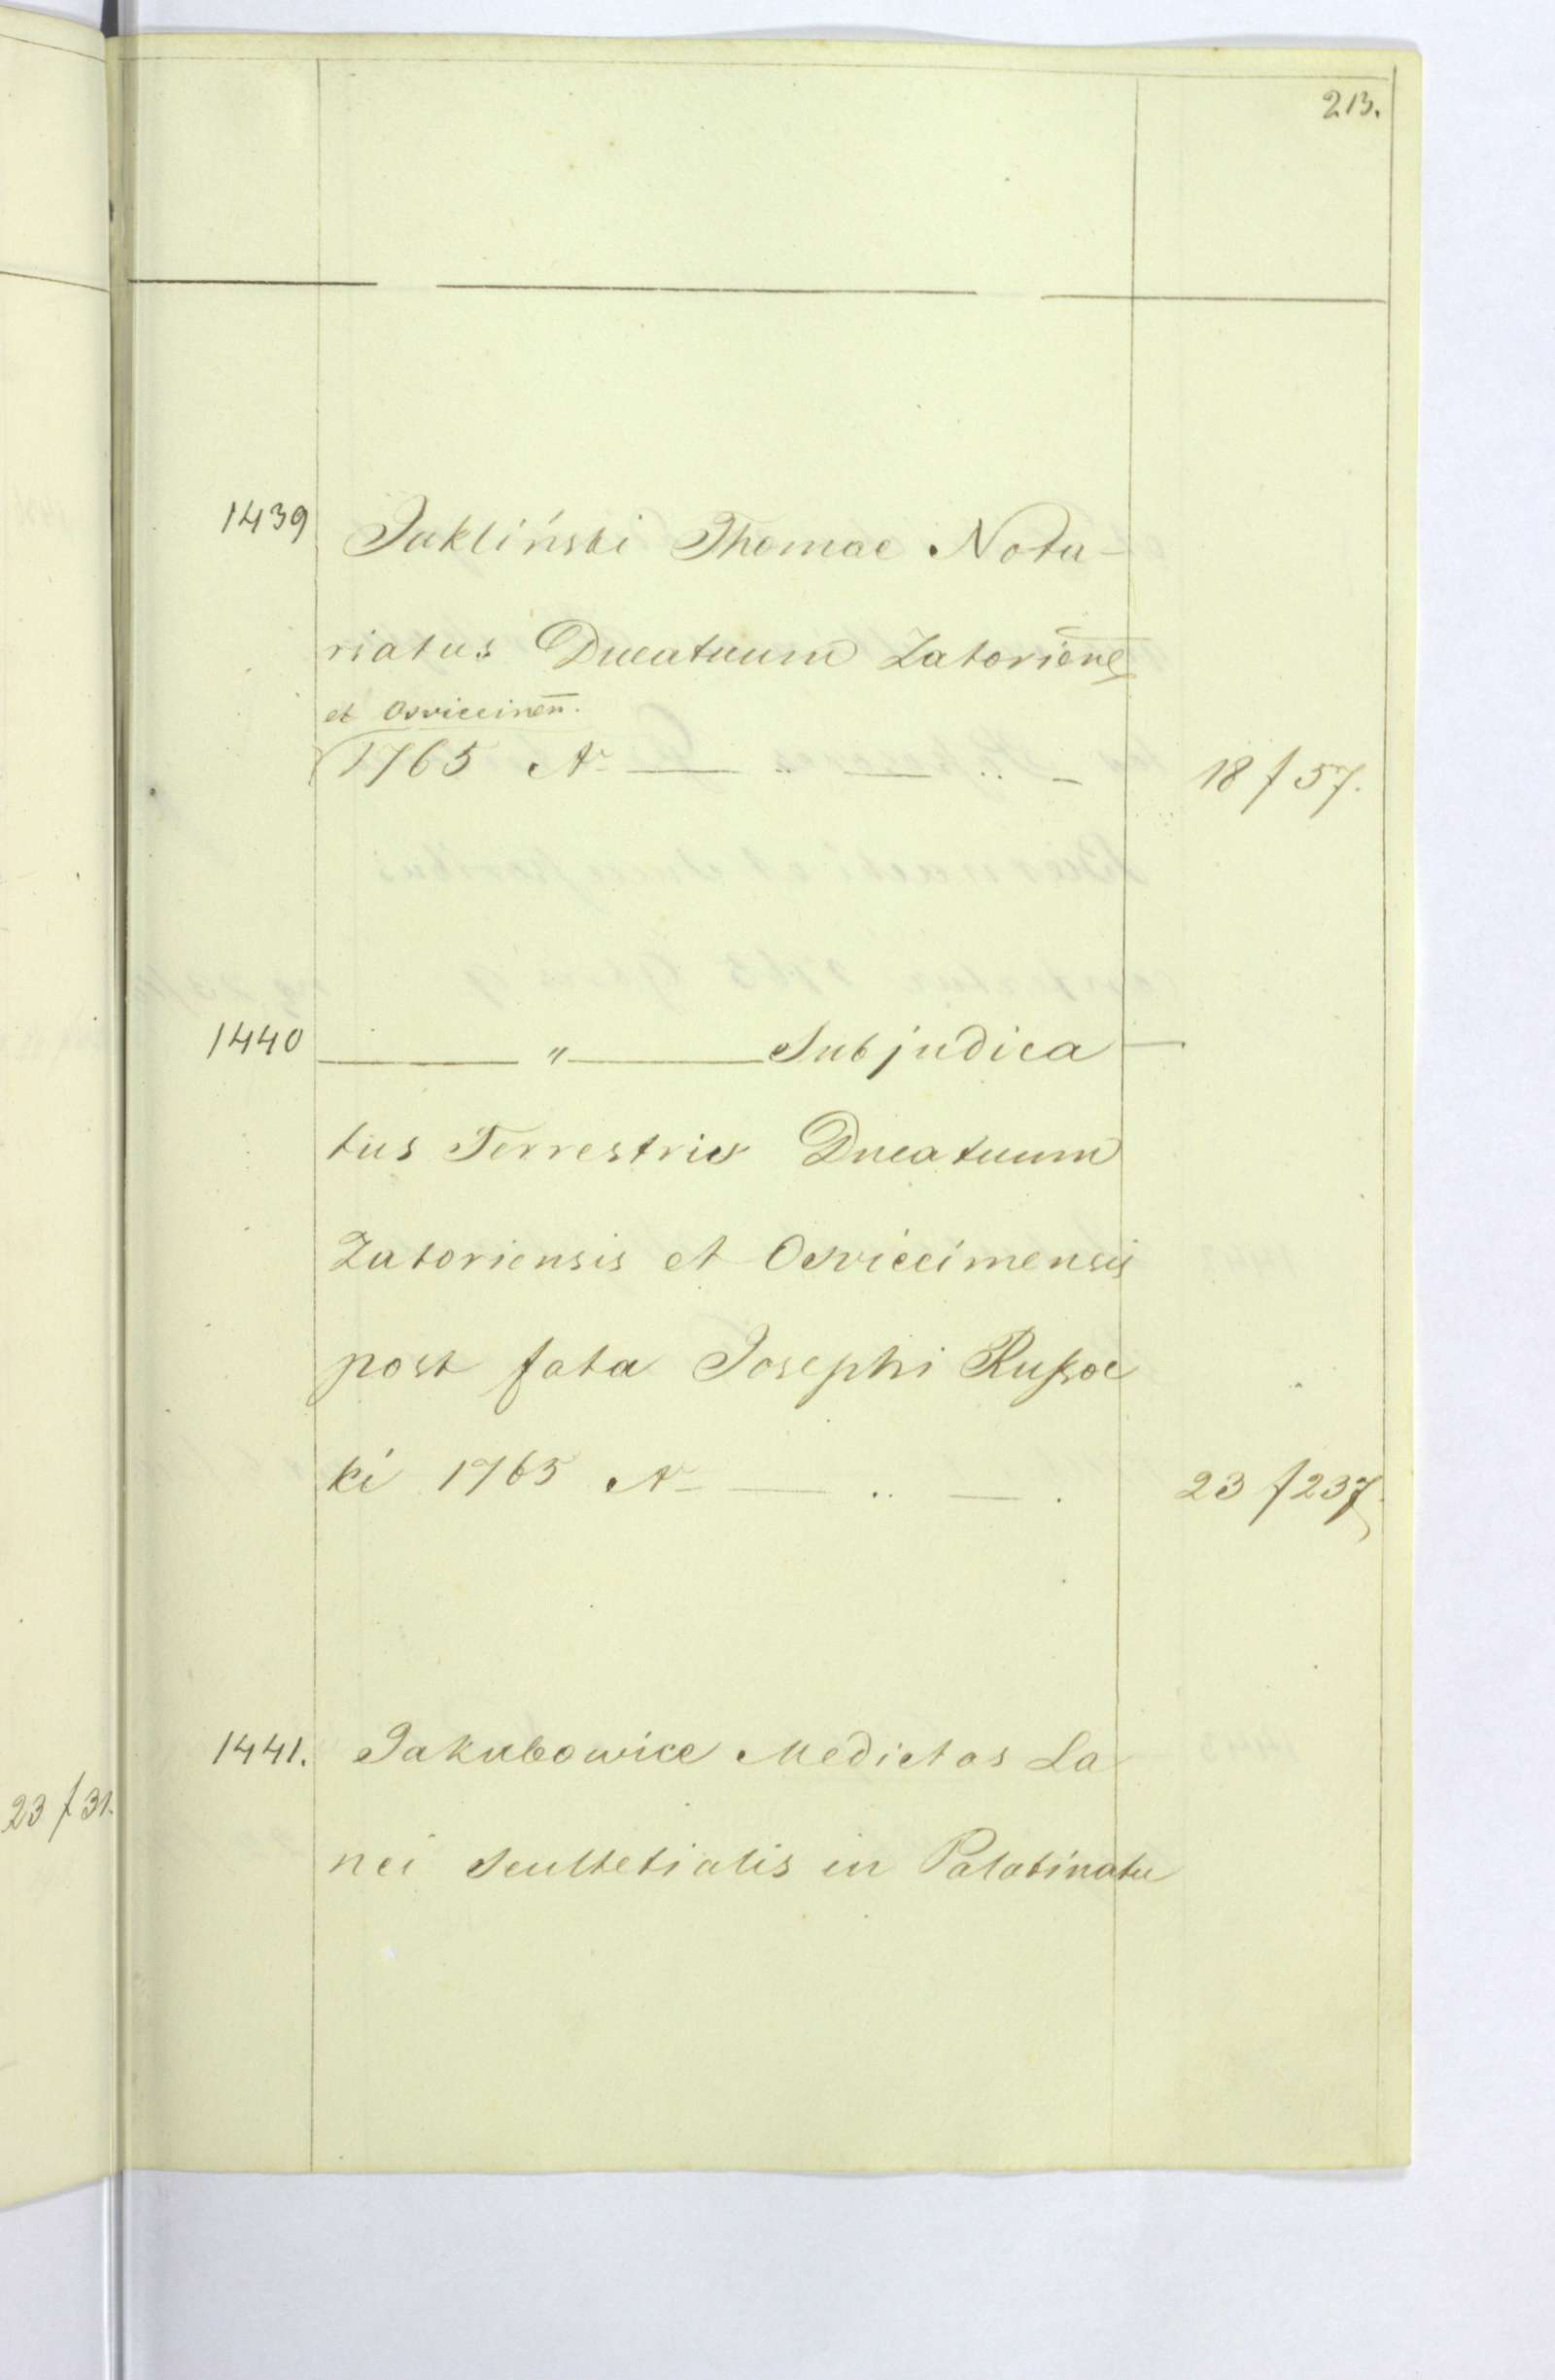 213.
1439 Jakliński Thomae Nota-
riatus Ducatuum Zatorienē
et Osviecinen̄.
1765 Ar — .. — .. — 18 f 57.
1440 — " — Subjudica —
tus Terrestris Ducatuum
Zatoriensis et Osviecimensis
post fata Josephi Rußoc
ki 1765 Ar — .. — . 23 f 237.
1441. Jakubowice Medietas La
nei Scultetialis in Palatinatu
23 f 31.